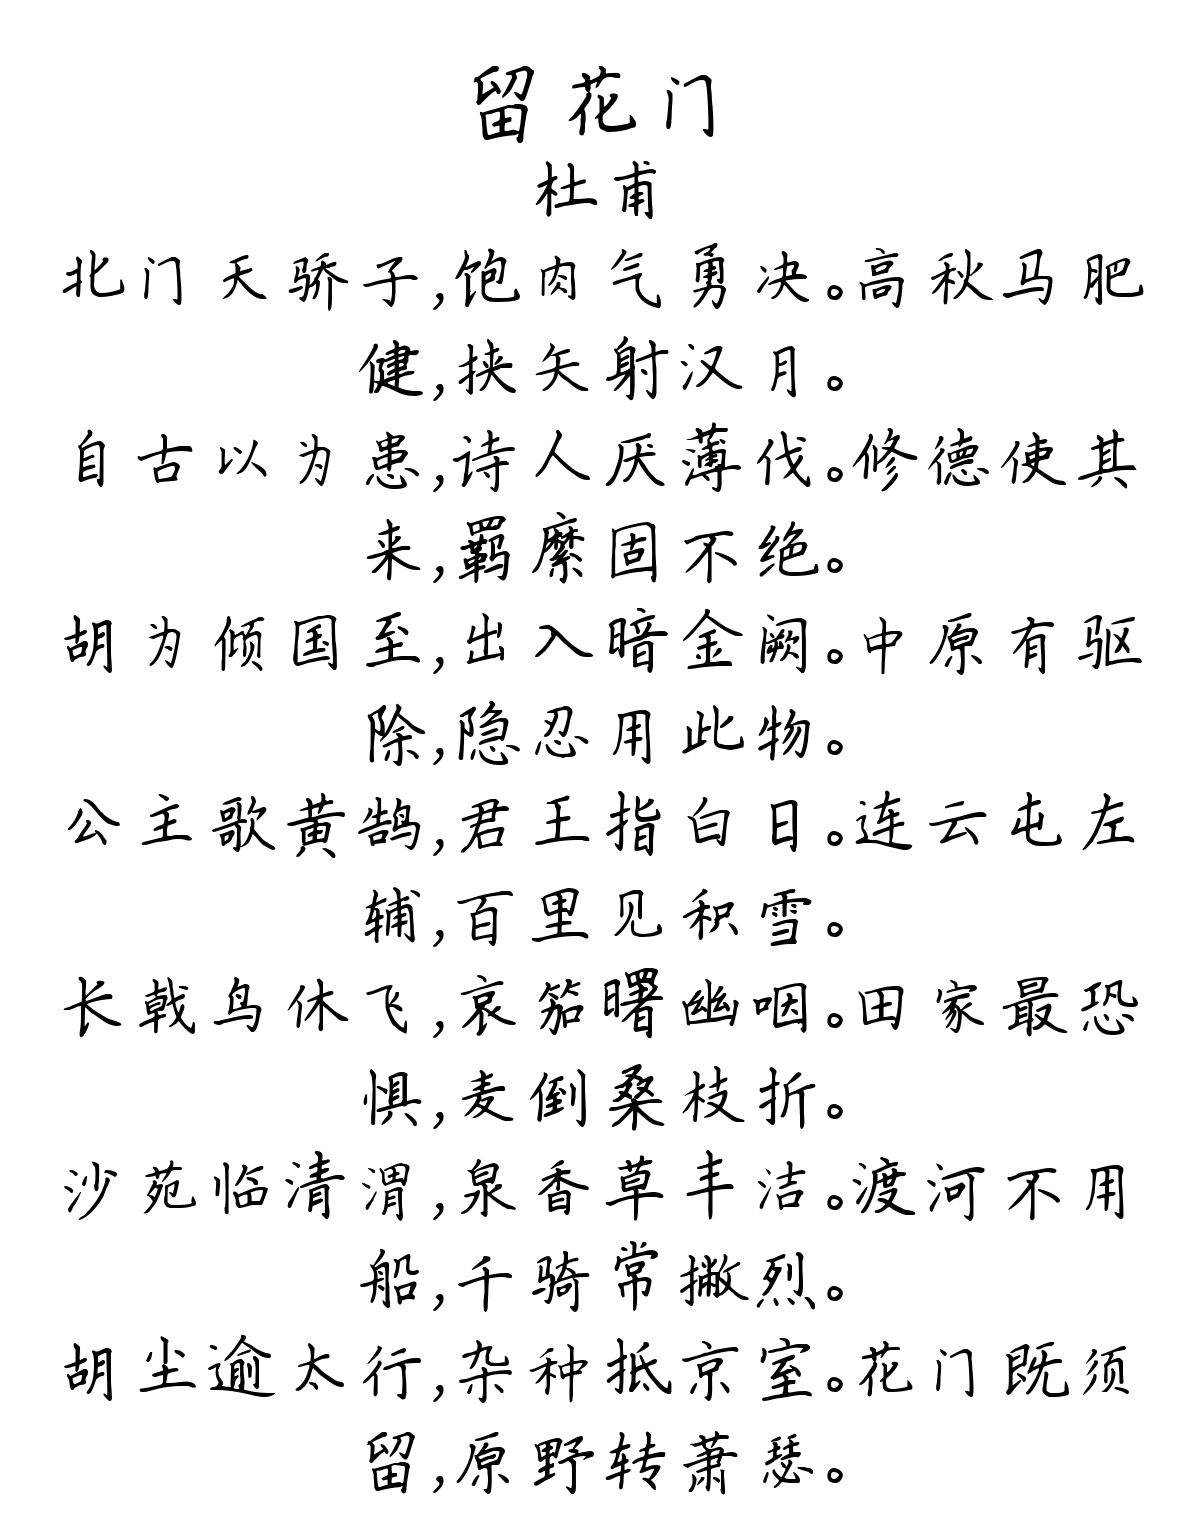 留花门
杜甫
北门天骄子,饱肉气勇决。高秋马肥
健,挟矢射汉月。
自古以为患,诗人厌薄伐。修德使其
来,羁縻固不绝。
胡为倾国至,出入暗金阙。中原有驱
除,隐忍用此物。
公主歌黄鹄,君王指白日。连云屯左
辅,百里见积雪。
长戟鸟休飞,哀笳曙幽咽。田家最恐
惧,麦倒桑枝折。
沙苑临清渭,泉香草丰洁。渡河不用
船,千骑常撇烈。
胡尘逾太行,杂种抵京室。花门既须
留,原野转萧瑟。